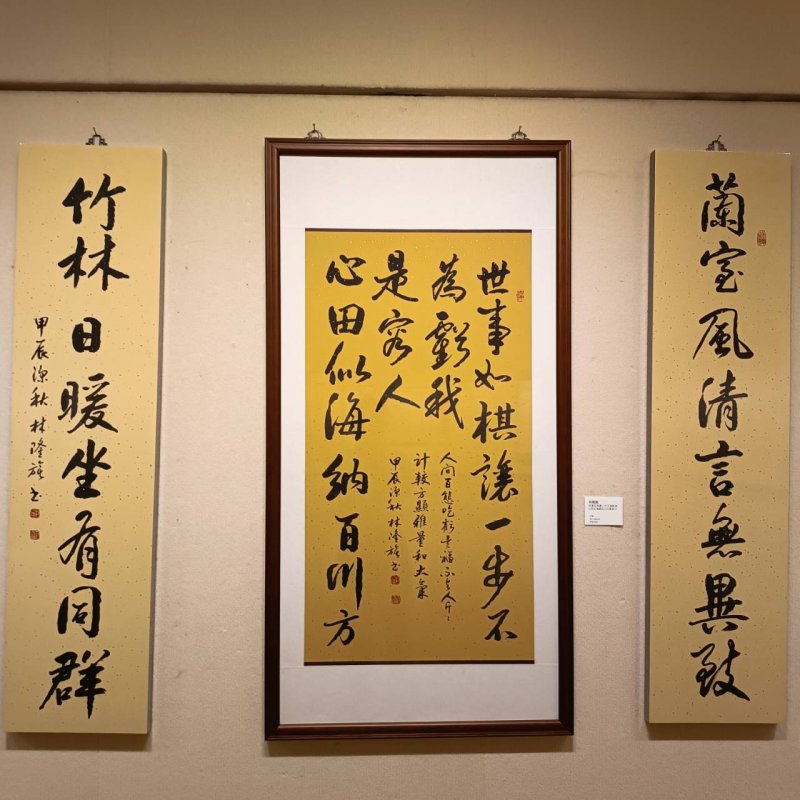 蘭室風清言無異致
世事如棋讓一步不
為虧我
心田似海納百川方
是容人
人間百態吃虧是福不與人斤〻
計較方顯雅量和大氣
甲辰深秋林隆書
竹林日暖坐有同群
甲辰深秋林隆書